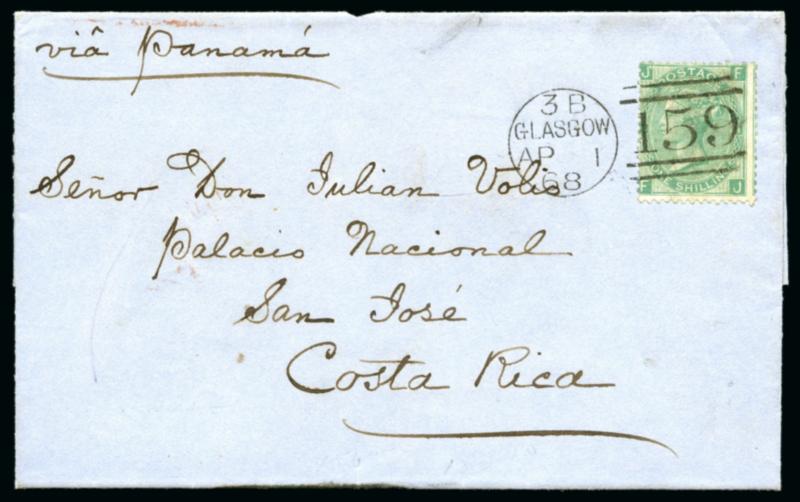 viâ Panamá
3 B
GLASGOW
AP 1
68
J POSTAGE F
159
ONE SHILLING
F J
Señor Don Julian Volio
Palacio Nacional
San José
Costa Rica